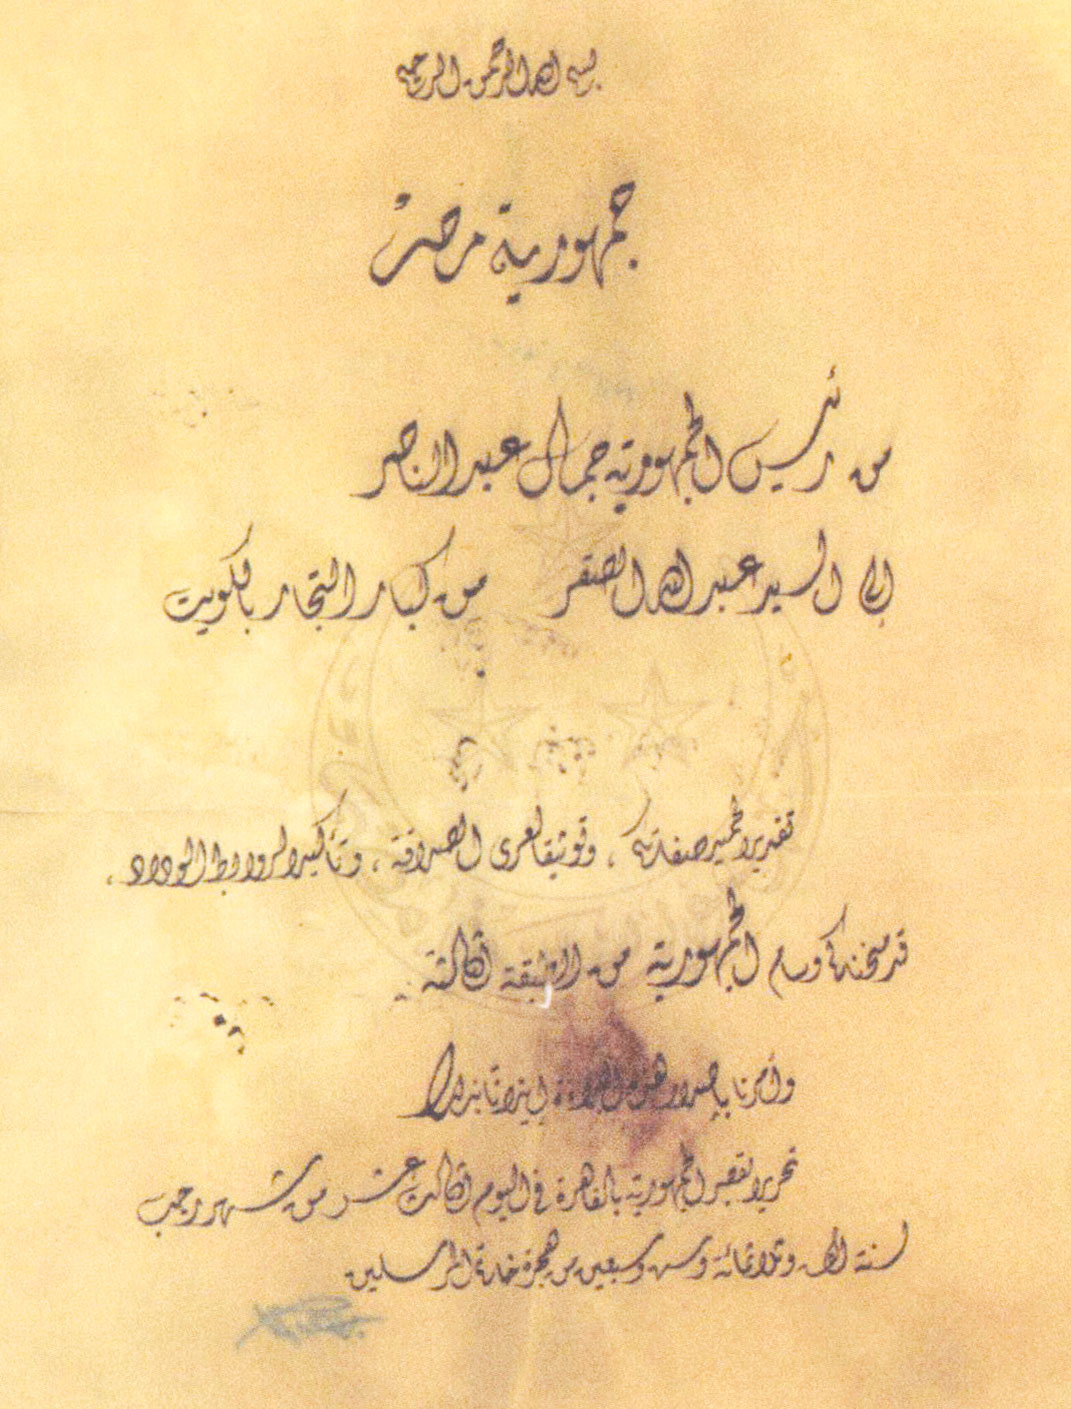 بسم الله الرحمن الرحيم
جمهورية مصر
من رئيس الجمهورية جمال عبد الناصر
إلى السيد عبد الله الصقر من كبار التجار بالكويت
تقديرا لحميد صفاتكم ، وتوثيقا لعرى الصداقة ، وتأكيدا لروابط الوداد ،
قد منحناكم وسام الجمهورية من الطبقة الثالثة
وأمرنا بإصدار هذه البراءة إيذانا بذلك
تحريرا بقصر الجمهورية بالقاهرة في اليوم الثالث عشر من شهر رجب
لسنة ألف وثلاثمائة وست وسبعين من هجرة خاتم المرسلين